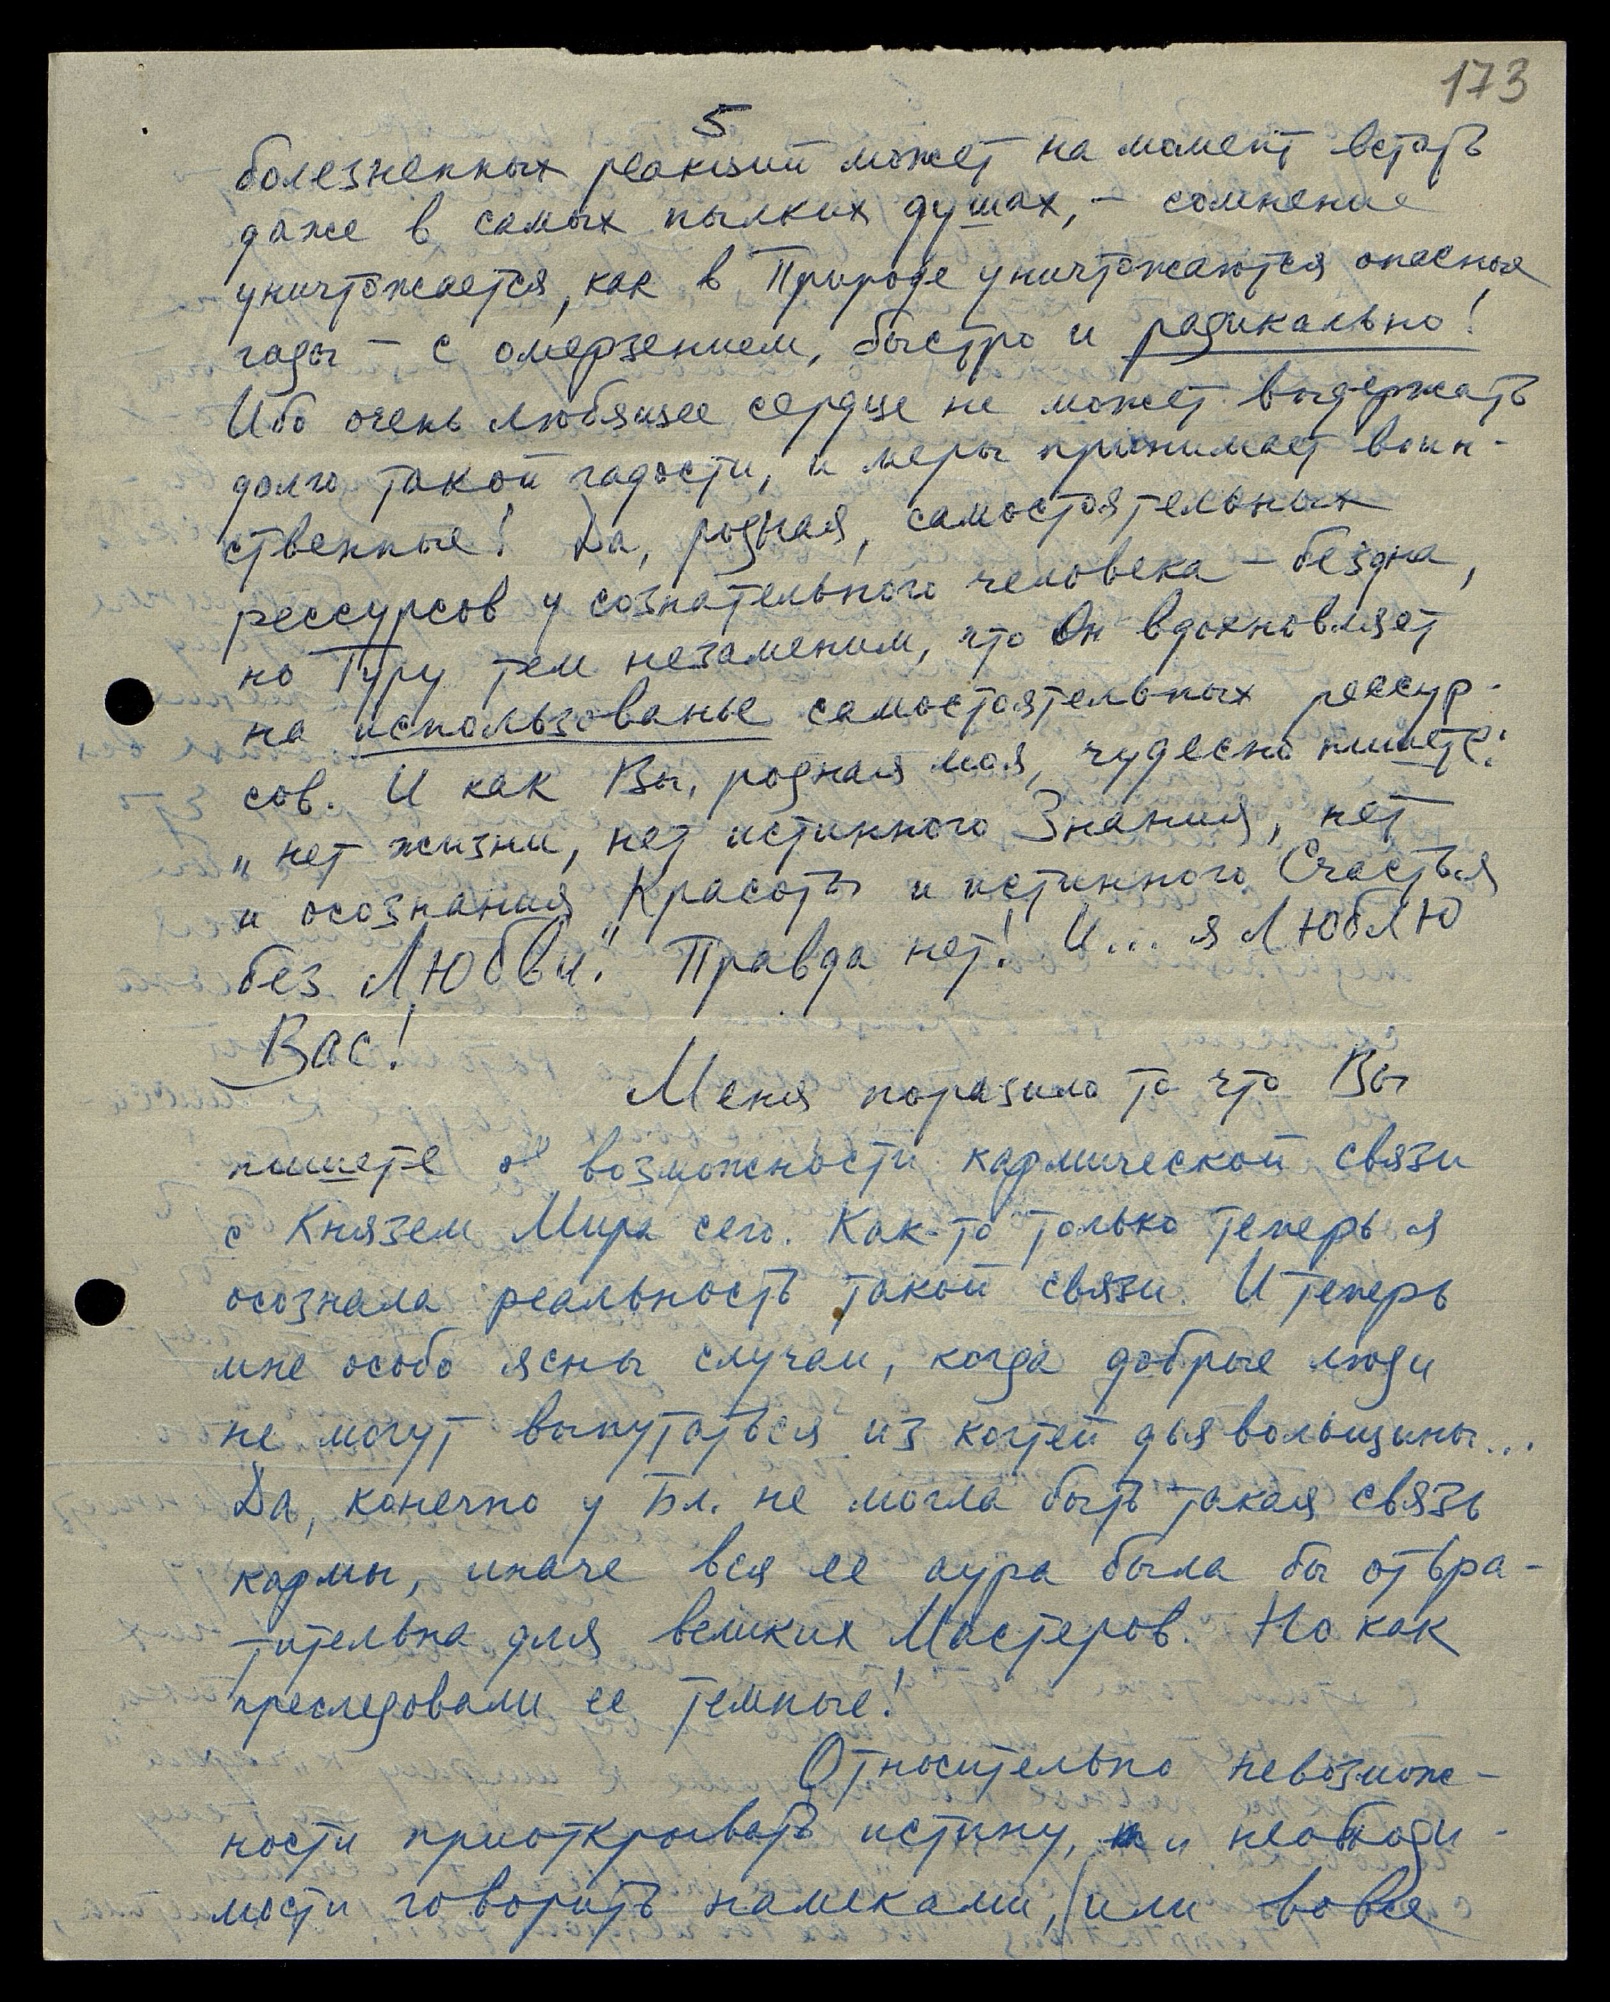 173
5
болезненных реакций может на момент встать
даже в самых пылких душах, – сомнение
уничтожается, как в Природе уничтожаются опасные
гады – с омерзением, быстро и радикально!
Ибо очень любящее сердце не может выдержать
долго такой гадости, и меры принимает воин-
ственные! Да, родная, самостоятельных
рессурсов у сознательного человека – бездна,
но Гуру тем незаменим, что Он вдохновляет
на использованье самостоятельных рессур-
сов. И как Вы, родная моя, чудесно пишете:
„нет жизни, нет истинного Знания, нет
и осознания Красоты и истинного Счастья
без Любви." Правда нет! И... я ЛЮблЮ
Вас!
Меня поразило то что Вы
пишете о возможности кармической связи
с Князем Мира сего. Как-то только теперь я
осознала реальность такой связи. И теперь
мне особо ясны случаи, когда добрые люди
не могут выпутаться из когтей дьявольщины...
Да, конечно у Бл. не могла быть такая связь
кармы, иначе вся ее аура была бы отвра-
-тительна для великих Мастеров. Но как
преследовали ее темные!
Относительно невозмож-
ности приоткрывать истину, и необходи-
мости говорить намеками, или вовсе